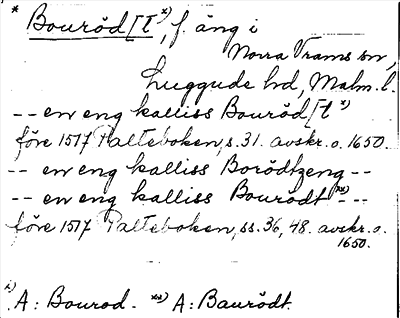 * Bouröd[t x), f. äng i
Norra Vrams sn,
Luggude hd, Malm. l.
-- en eng kalliss Bouröd[t x)
före 1517 Palteboken, s. 31. avskr. o. 1650.
-- en eng kalliss Borödtzeng --
-- en eng kalliss Bourödt xx) --
före 1517 Palteboken, ss. 36, 48. avskr. o.
1650.
x) A: Bourod. - xx) A: Baurödt.